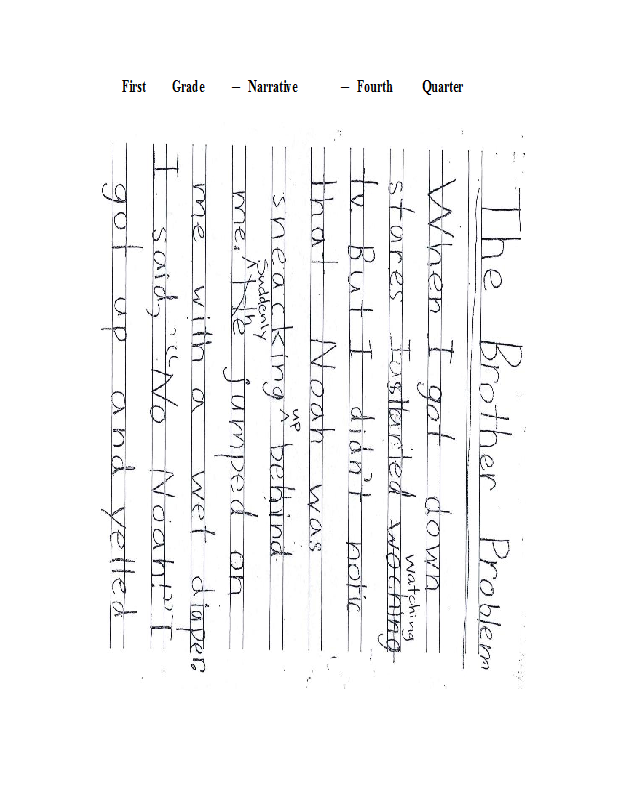 First Grade – Narrative – Fourth Quarter
The Brother Problem
When I got down
stares I started watching
tv. But I didn't notic
that Noah was
sneacking up behind
me. Suddenly he jumped on
me with a wet diaper
I said, "No Noah!" I
got up and yelled